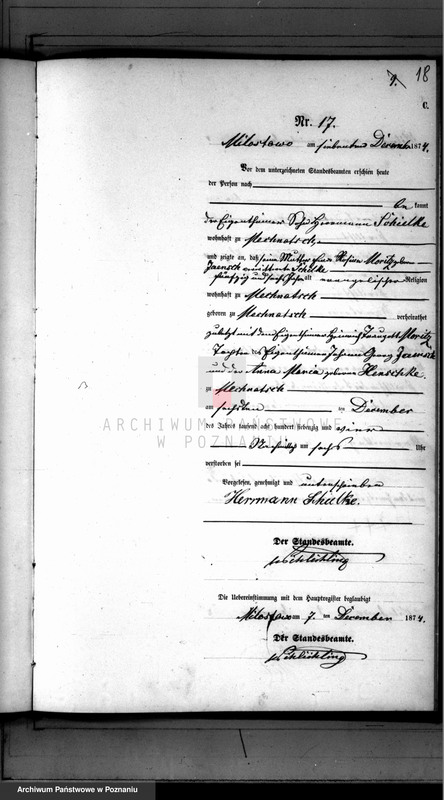 18
C.
Nr. 17.
Milostowo am siebenten December 1874.
Vor dem unterzeichneten Standesbeamten erschien heute
der Person nach
bekannt
der Eigenthümer Herrmann Schielke
wohnhaft zu Mechnatsch,
und zeigte an, daß seine Mutter Rosina Moritz geborene
Jaensch Schielke
fünfzig und sechs Jahre alt evangelischer Religion
wohnhaft zu Mechnatsch
geboren zu Mechnatsch verheirathet
zuletzt mit dem Eigenthümer Heinrich Traugott Moritz
Tochter des Eigenthümer Johann Georg Jaensch
und der Anna Maria geborene Henschke.
zu Mechnatsch
am sechsten ten December
des Jahres tausend acht hundert siebenzig und vier
Nachmittags um sechs Uhr
verstorben sei
Vorgelesen, genehmigt und unterschrieben
Herrmann Schielke.
Der Standesbeamte.
Schlichting
Die Uebereinstimmung mit dem Hauptregister beglaubigt
Milostowo am 7. ten December 1874.
Der Standesbeamte.
Schlichting
ARCHIWUM PAŃSTWOWE
W POZNANIU
Archiwum Państwowe w Poznaniu